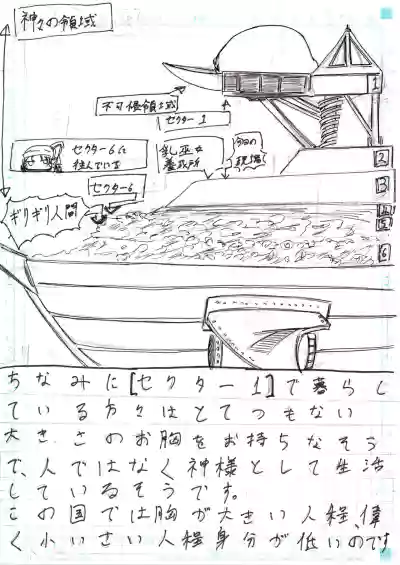 神々の領域
1
不可侵領域
セクター1
セクター6に
住んでいる
セクター6
乳巫女
養成所
今回の
現場
ギリギリ人間
2
3
4
5
6
ちなみに[セクター1]で暮らし
ている方々はとてつもない
大きさのお胸をお持ちなそう
で、人ではなく神様として生活
しているそうです。
この国では胸が大きい人程、偉
く小いさい人程身分が低いのです